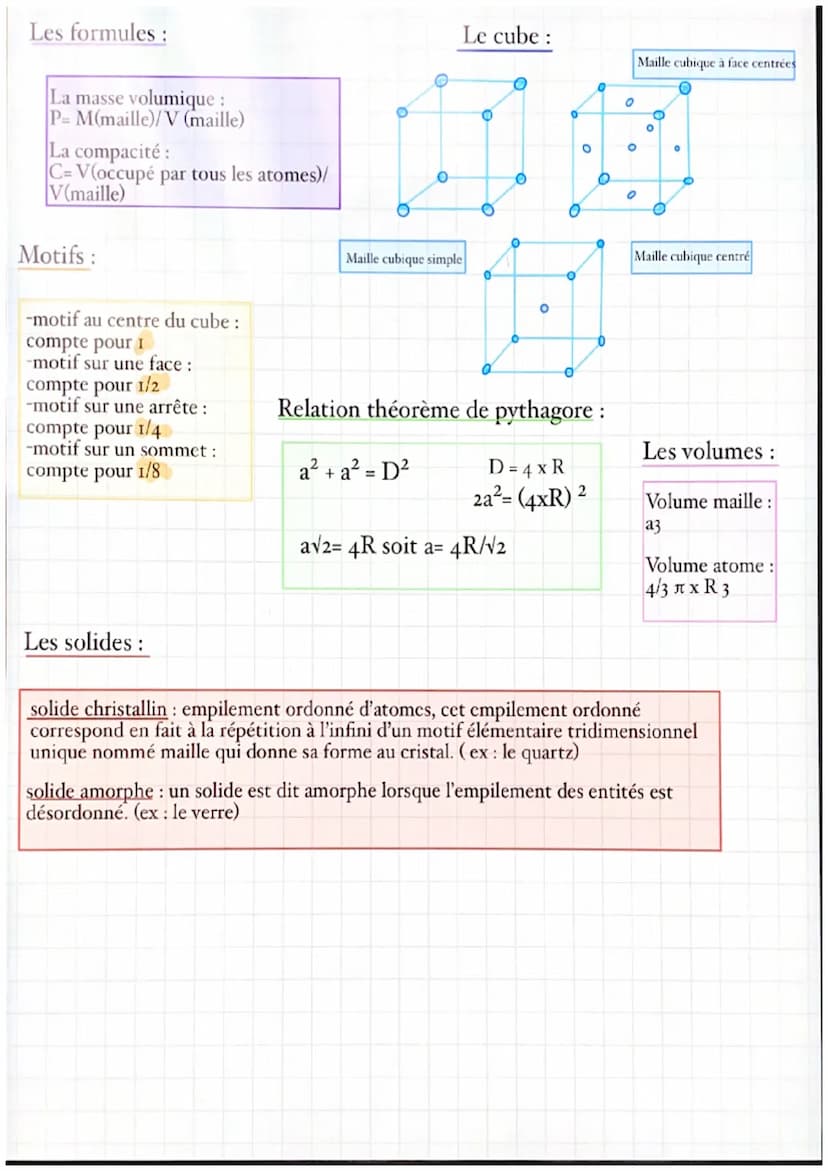 Les formules :
Le cube :
Maille cubique à face centrées
La masse volumique :
P= M(maille)/V (maille)
La compacité :
C= V(occupé par tous les atomes)/
V(maille)
Motifs :
Maille cubique simple
Maille cubique centré
-motif au centre du cube :
compte pour 1
-motif sur une face :
compte pour 1/2
-motif sur une arrête :
compte pour 1/4
-motif sur un sommet :
compte pour 1/8
Relation théorème de pythagore :
a² + a² = D²
D = 4 x R
2a²= (4xR) ²
a√2= 4R soit a= 4R/√2
Les volumes :
Volume maille :
a3
Volume atome :
4/3 π x R 3
Les solides :
solide christallin : empilement ordonné d'atomes, cet empilement ordonné
correspond en fait à la répétition à l'infini d'un motif élémentaire tridimensionnel
unique nommé maille qui donne sa forme au cristal. ( ex : le quartz)
solide amorphe : un solide est dit amorphe lorsque l'empilement des entités est
désordonné. (ex : le verre)